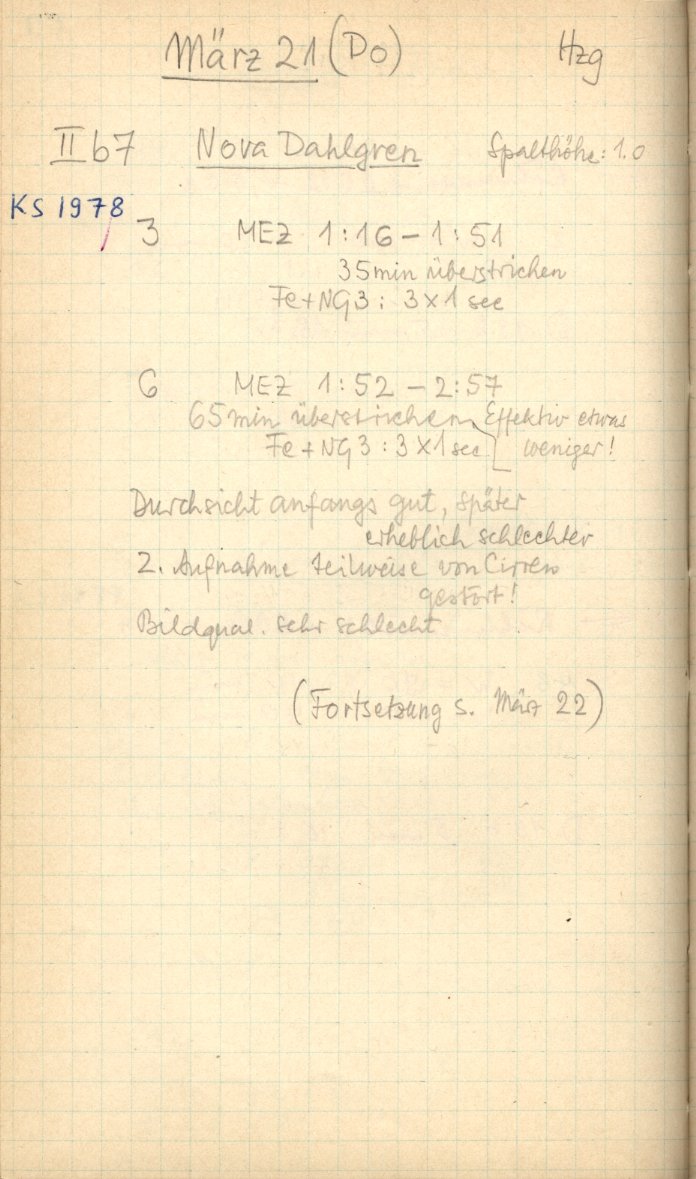 März 21 (Do) Hzg
II b7 Nova Dahlgren Spalthöhe: 1.0
KS 1978
3 MEZ 1:16 – 1:51
35min überstrichen
Fe+NG3: 3×1 sec
6 MEZ 1:52 – 2:57
65min überstrichen Effektiv etwas
Fe+NG3: 3×1 sec weniger!
Durchsicht anfangs gut, später
erheblich schlechter
2. Aufnahme teilweise von Cirren
gestört!
Bildqual. sehr schlecht
(Fortsetzung s. März 22)